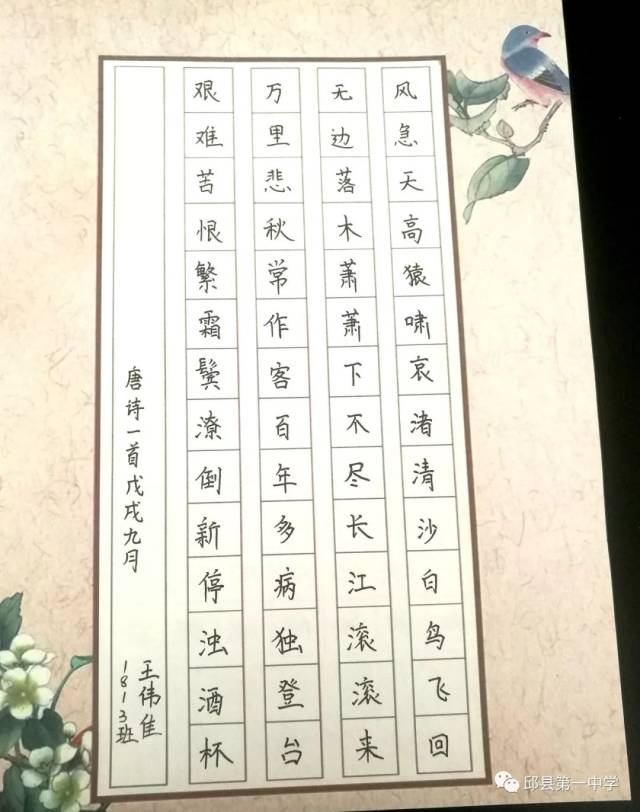 风急天高猿啸哀渚清沙白鸟飞回
无边落木萧萧下不尽长江滚滚来
万里悲秋常作客百年多病独登台
艰难苦恨繁霜鬓潦倒新停浊酒杯
唐诗一首戊戌九月
王伟佳
1813班
邱县第一中学